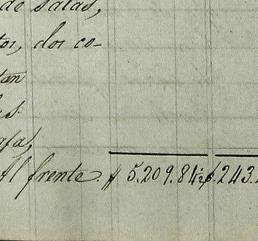 de salas,
tos, dos co-
tan
es
afa,
Al frente. $ 5.209.84½ $ 243.